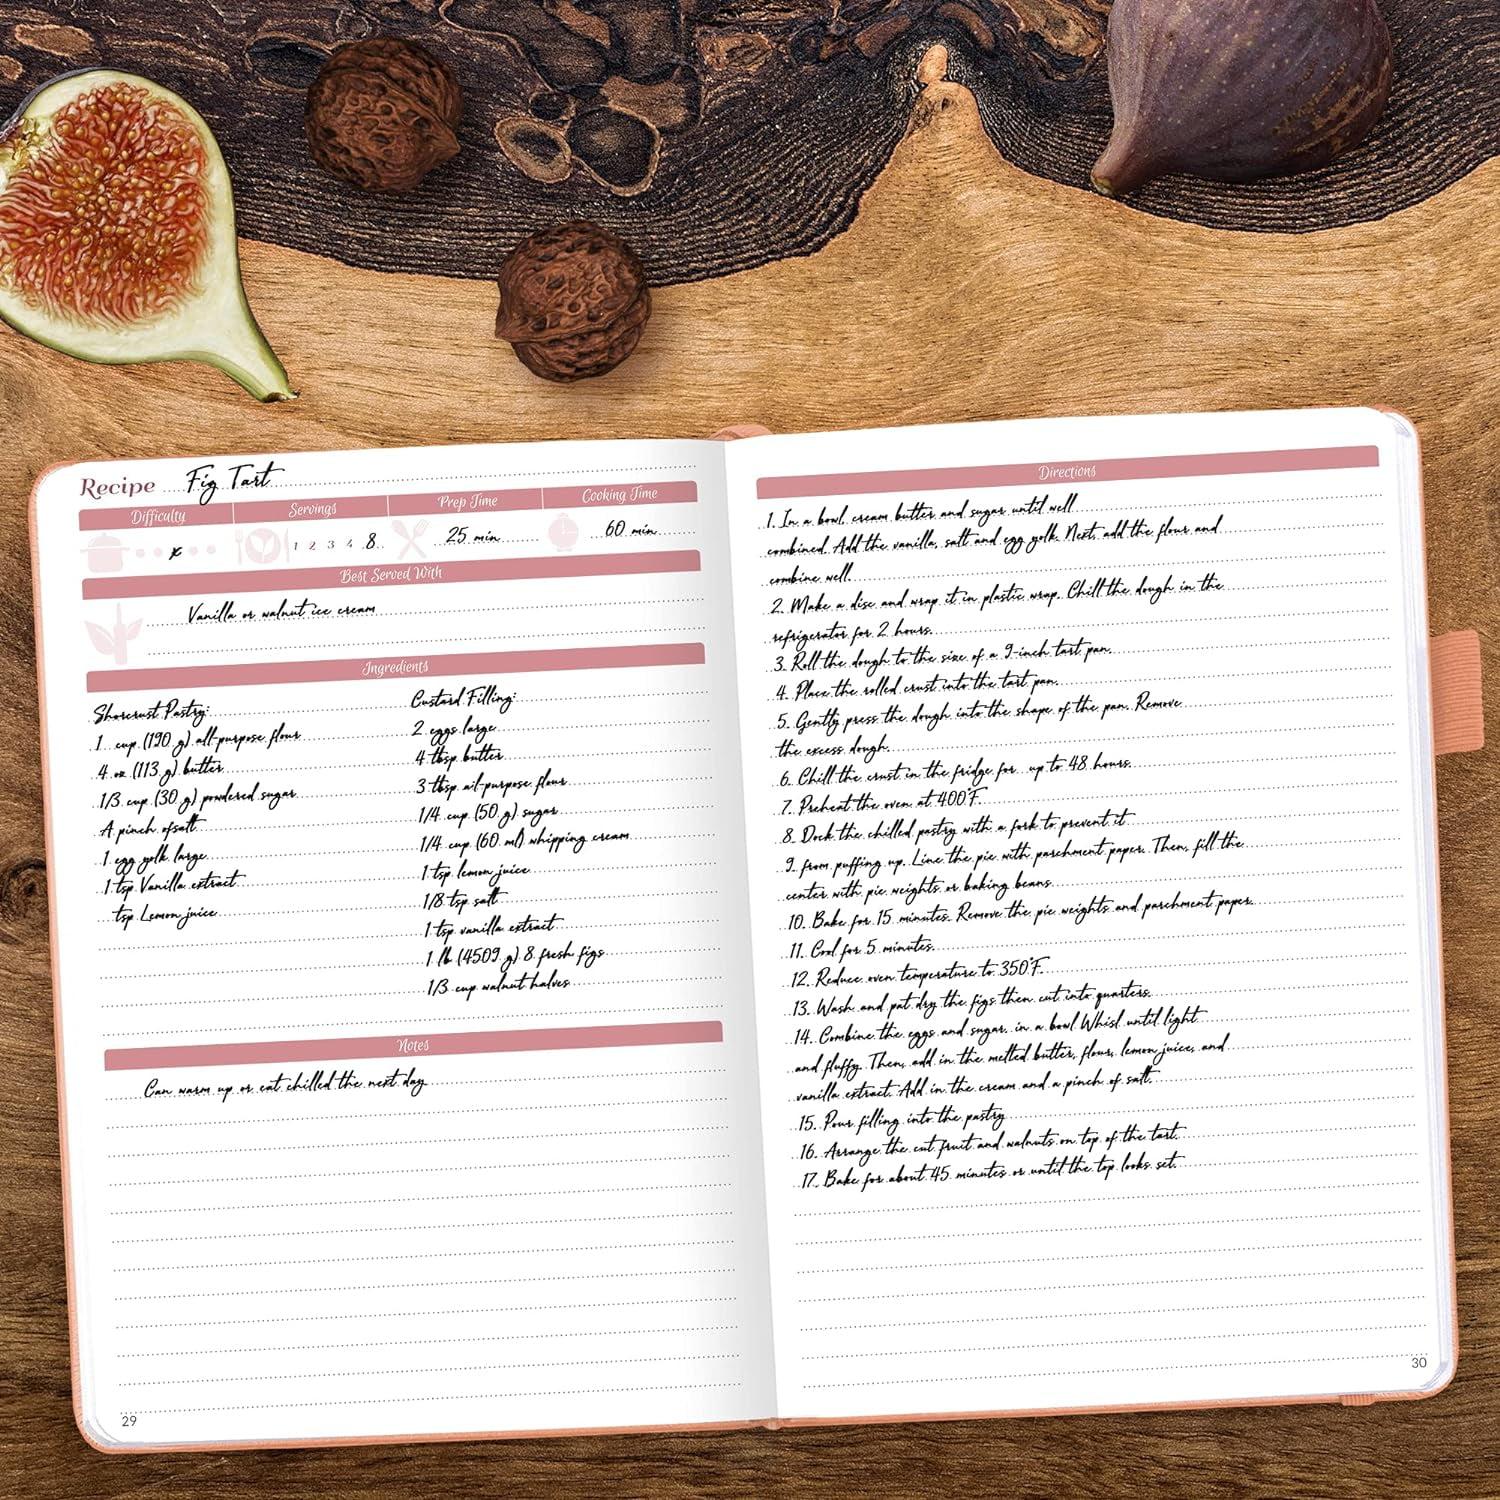 Recipe Fig Tart
Difficulty Servings Prep Time Cooking Time
x 1 2 3 4 8 25 min 60 min
Best Served With
Vanilla or walnut ice cream
Ingredients
Shorcrust Pastry:
1 cup (190 g) all-purpose flour
4 oz (113 g) butter
1/3 cup (30 g) powdered sugar
A pinch ofsalt
1 egg yolk large
1 tsp Vanilla extract
tsp Lemon juice
Custard Filling:
2 eggs large
4 tbsp butter
3 tbsp ail-purpose flour
1/4 cup (50 g) sugar
1/4 cup (60 ml) whipping cream
1 tsp lemon juice
1/8 tsp salt
1 tsp vanilla extract
1 lb (4509 g) 8 fresh figs
1/3 cup walnut halves
Notes
Can warm up or eat chilled the next day
29
Directions
1. In a bowl, cream butter and sugar until well
combined. Add the vanilla, salt and egg yolk. Next, add the flour and
combine well.
2. Make a disc and wrap it in plastic wrap. Chill the dough in the
refrigerator for 2 hours.
3. Roll the dough to the size of a 9-inch tart pan.
4. Place the rolled crust into the tart pan.
5. Gently press the dough into the shape of the pan. Remove
the excess dough.
6. Chill the crust in the fridge for up to 48 hours.
7. Preheat the oven at 400°F.
8. Dock the chilled pastry with a fork to prevent it
9. from puffing up. Line the pie with parchment paper. Then, fill the
center with pie weights or baking beans
10. Bake for 15 minutes. Remove the pie weights and parchment paper.
11. Cool for 5 minutes.
12. Reduce oven temperature to 350°F.
13. Wash and pat dry the figs then cut into quarters.
14. Combine the eggs and sugar in a bowl Whisl until light
and fluffy. Then, add in the melted butter, flour, lemon juice, and
vanilla extract. Add in the cream and a pinch of salt.
15. Pour filling into the pastry
16. Arrange the cut fruit and walnuts on top of the tart.
17. Bake for about 45 minutes or until the top looks set.
30